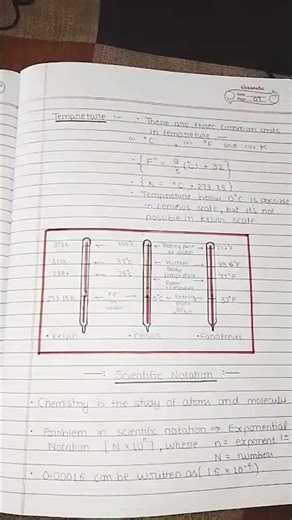 classmate
Date
Page 01
Tempreture :-
• There are three common units
in tempreture —
(i) °C, (ii) °F and (iii) K
• { F° = 9/5 (°C) + 32 }
• { K = °C + 273.15 }
• Tempreture below 0°C is possible
in celcius scale, but it's not
possible in Kelvin scale
373K 100°C Boiling point of water 212°F
310K 37°C Human Body 98.6°F
298K 25°C Room 77°F
273.15K 0°C point 32°F
• Kelvin • Celcius • Farenheit
—: Scientific Notation :—
• Chemistry is the study of atoms and molecules
• Problem in scientific notation ⇒ Exponential
Notation [N × 10ⁿ], where n = exponent
N = number
• 0.00016 can be written as (1.6 × 10⁻⁴)